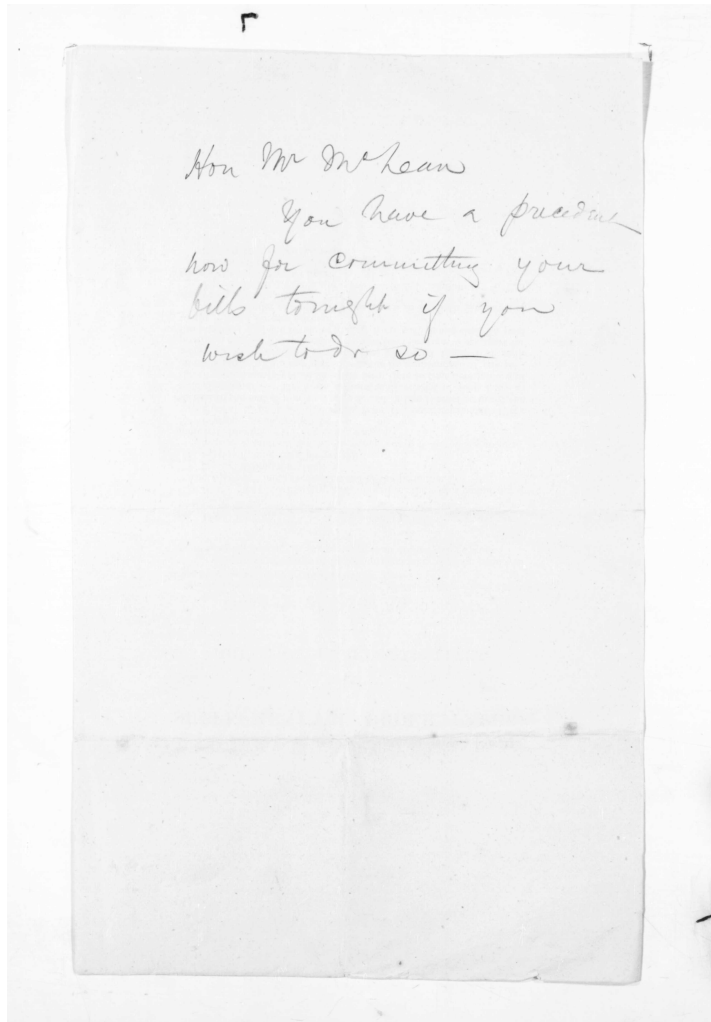 Hon Mr McLean
You have a precedent
now for committing your
bills tonight if you
wish to do so —